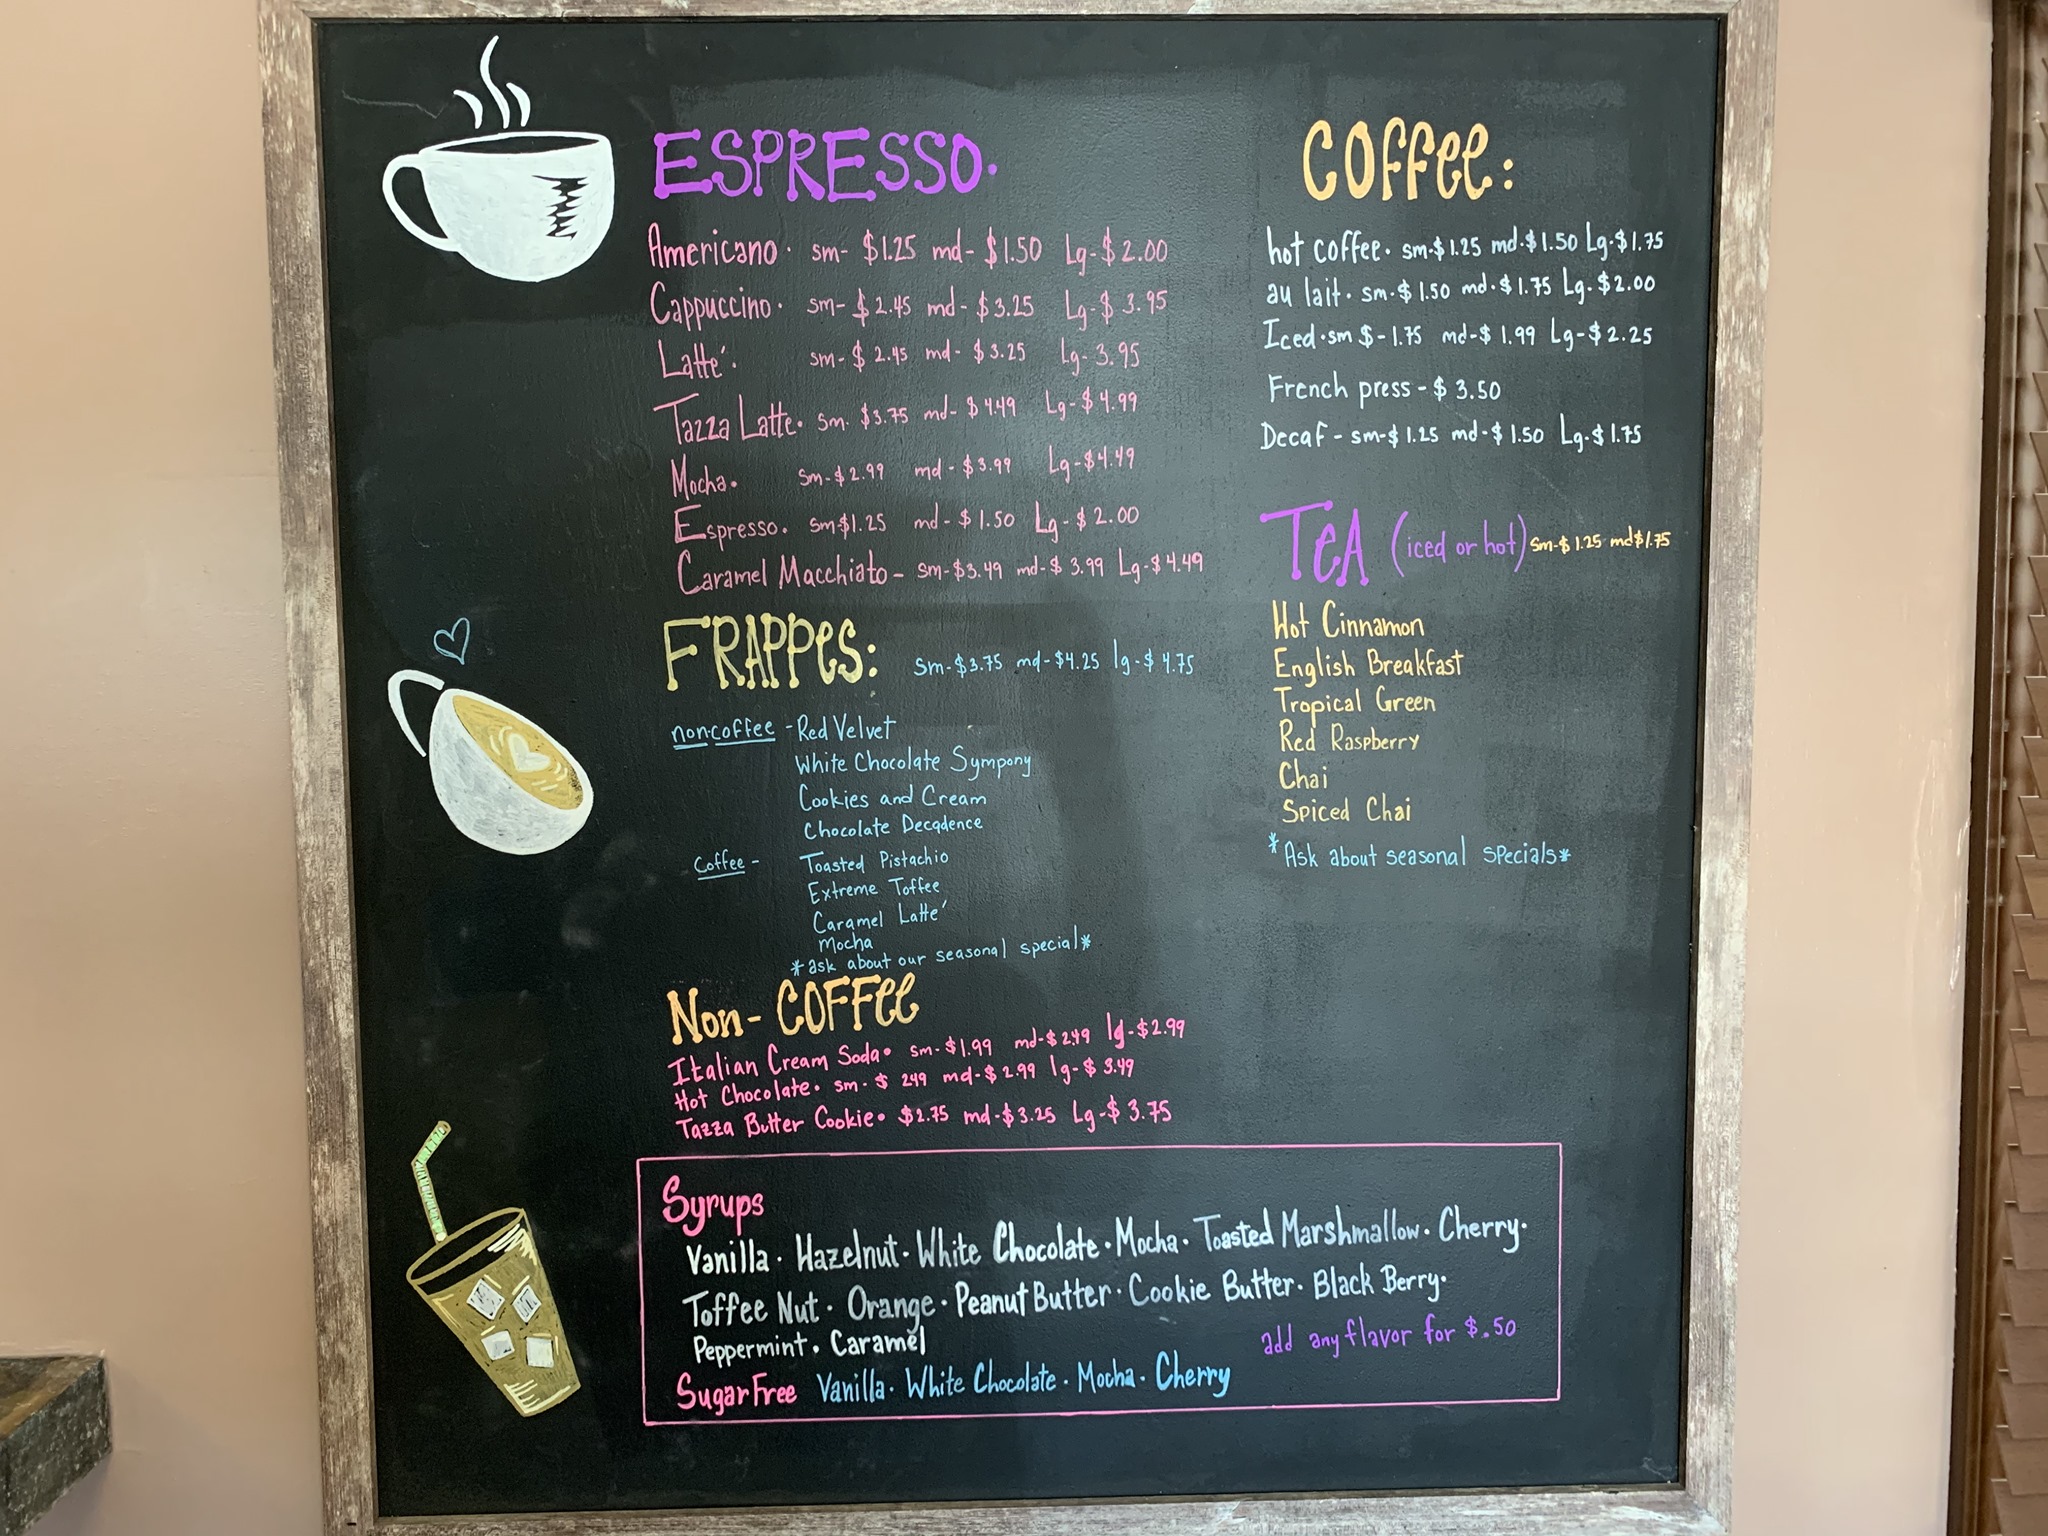 ESPRESSO.
Americano · sm- $1.25 md- $1.50 Lg-$2.00
Cappuccino · sm- $2.45 md- $3.25 Lg-$3.95
Latté · sm- $2.45 md- $3.25 Lg- 3.95
Tazza Latte · sm. $3.75 md- $4.49 Lg-$4.99
Mocha · sm-$2.99 md-$3.99 Lg-$4.49
Espresso · sm$1.25 md-$1.50 Lg-$2.00
Caramel Macchiato - sm-$3.49 md-$3.99 Lg-$4.49
FRAPPES: sm-$3.75 md-$4.25 lg-$4.75
non-coffee - Red Velvet
White Chocolate Sympony
Cookies and Cream
Chocolate Decadence
Coffee - Toasted Pistachio
Extreme Toffee
Caramel Latté
Mocha
*ask about our seasonal special*
Non-COFFEE
Italian Cream Soda · sm-$1.99 md-$2.49 lg-$2.99
Hot Chocolate · sm-$ 249 md-$2.99 lg-$3.49
Tazza Butter Cookie · $2.75 md-$3.25 Lg-$3.75
COFFEE:
hot coffee · sm-$1.25 md-$1.50 Lg-$1.75
au lait · sm-$1.50 md-$1.75 Lg-$2.00
Iced · sm $-1.75 md-$1.99 Lg-$2.25
French press - $3.50
Decaf - sm-$1.25 md-$1.50 Lg-$1.75
TEA (iced or hot) sm-$1.25 md$1.75
Hot Cinnamon
English Breakfast
Tropical Green
Red Raspberry
Chai
Spiced Chai
*Ask about seasonal specials*
Syrups
Vanilla · Hazelnut · White Chocolate · Mocha · Toasted Marshmallow · Cherry ·
Toffee Nut · Orange · Peanut Butter · Cookie Butter · Black Berry ·
Peppermint · Caramel
add any flavor for $.50
Sugar Free Vanilla · White Chocolate · Mocha · Cherry